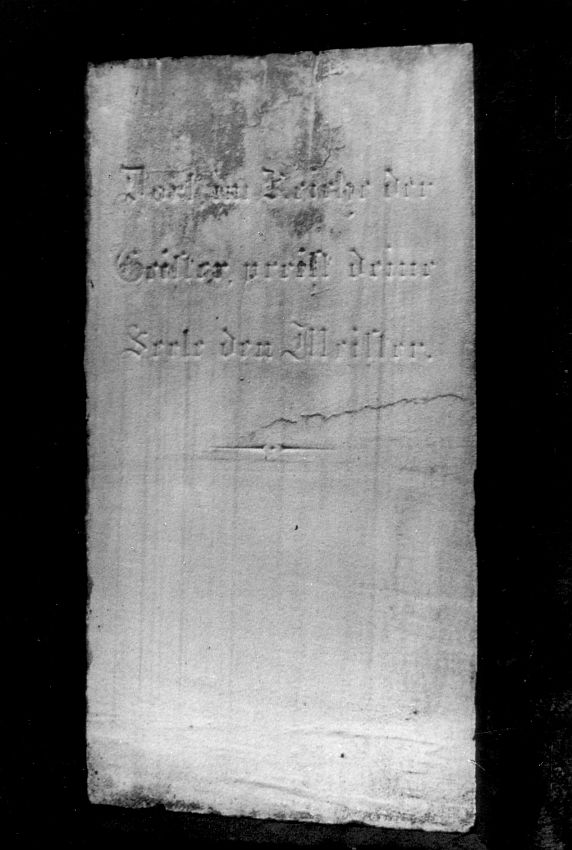 Dort im Reiche der
Geister, preist deine
Seele den Meister.